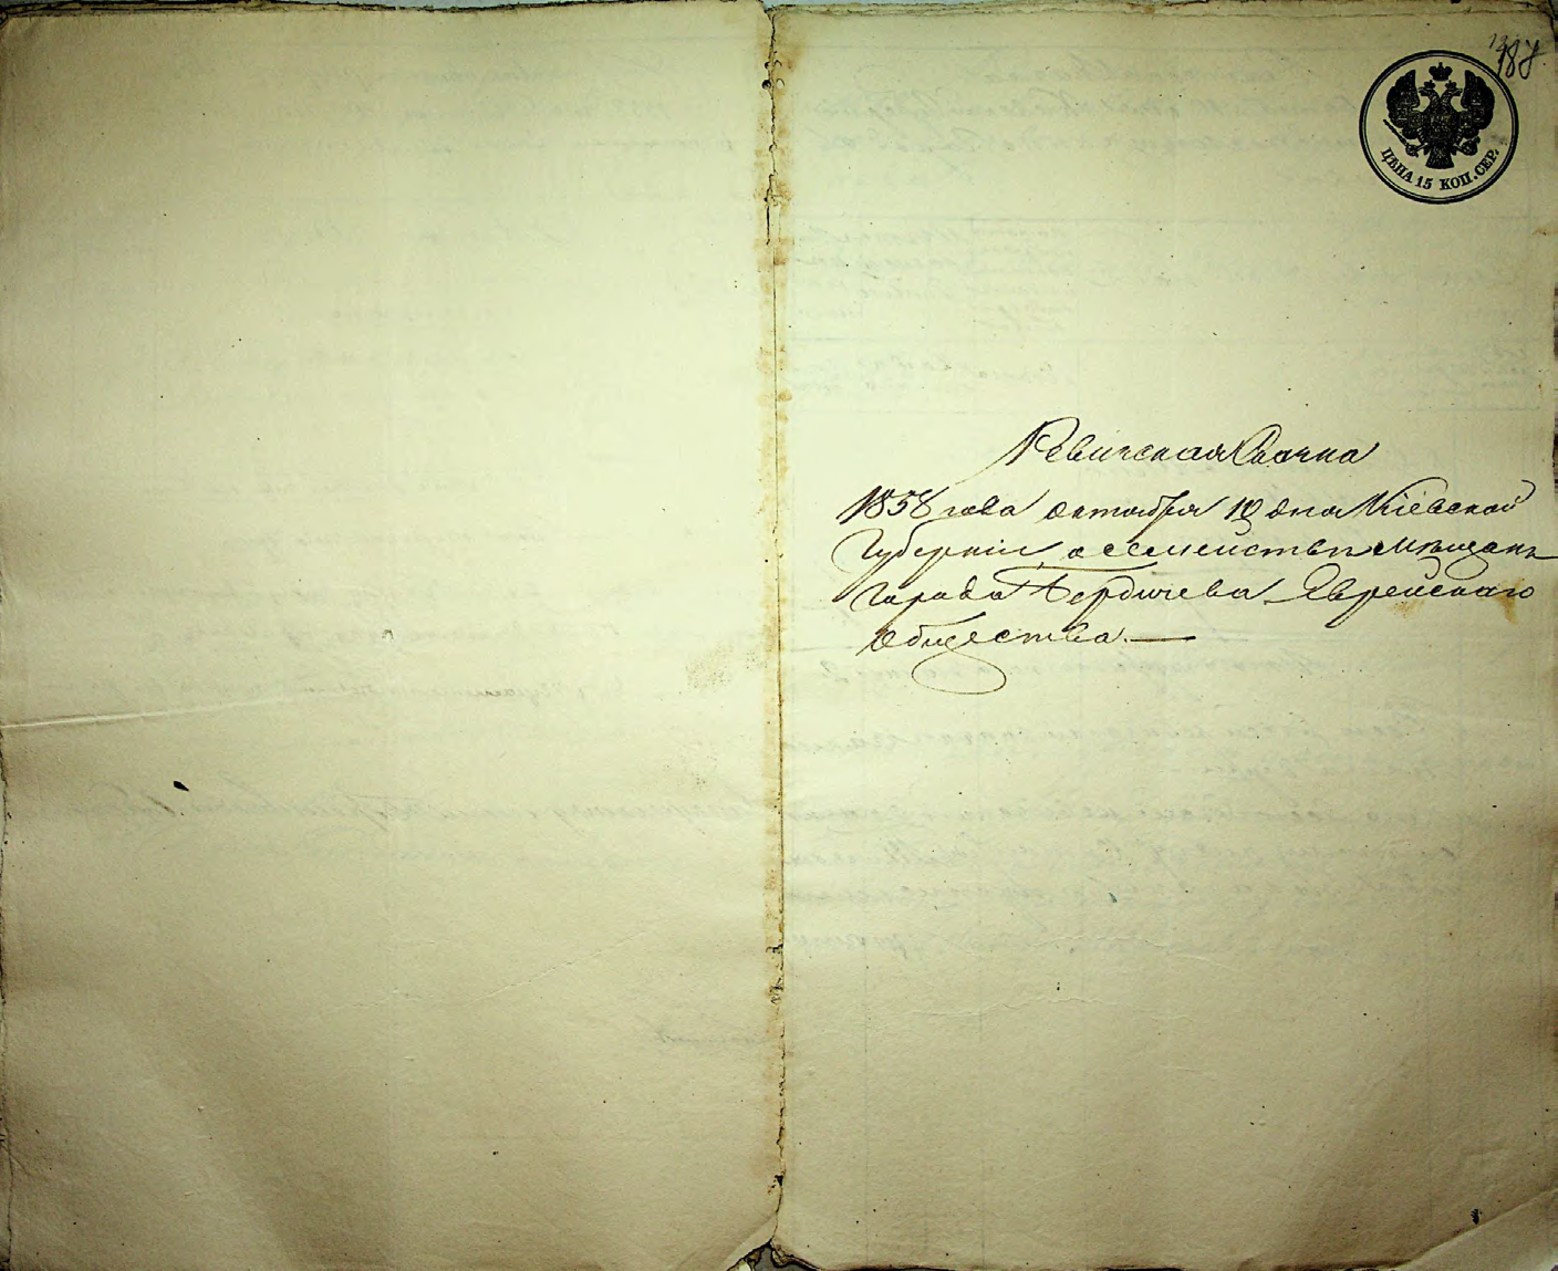 187.
ЦѢНА 15 КОП. СЕР.
Ревизская Сказка
1858 года октября 10 дня Кіевской
Губерніи, о семействѣ мѣщанъ
города Бердичева Еврейскаго
общества.—